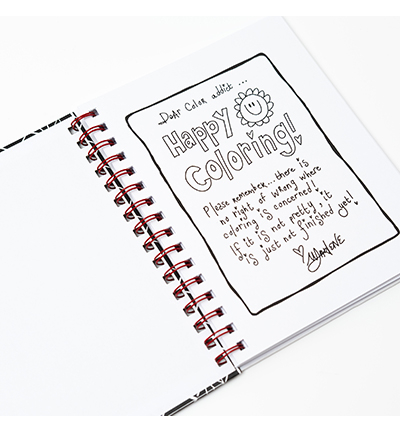 Dear Color addict...
Happy
Coloring!
Please remember... there is
no right of wrong where
coloring is concerned!
If it is not pretty, it
is just not finished yet!